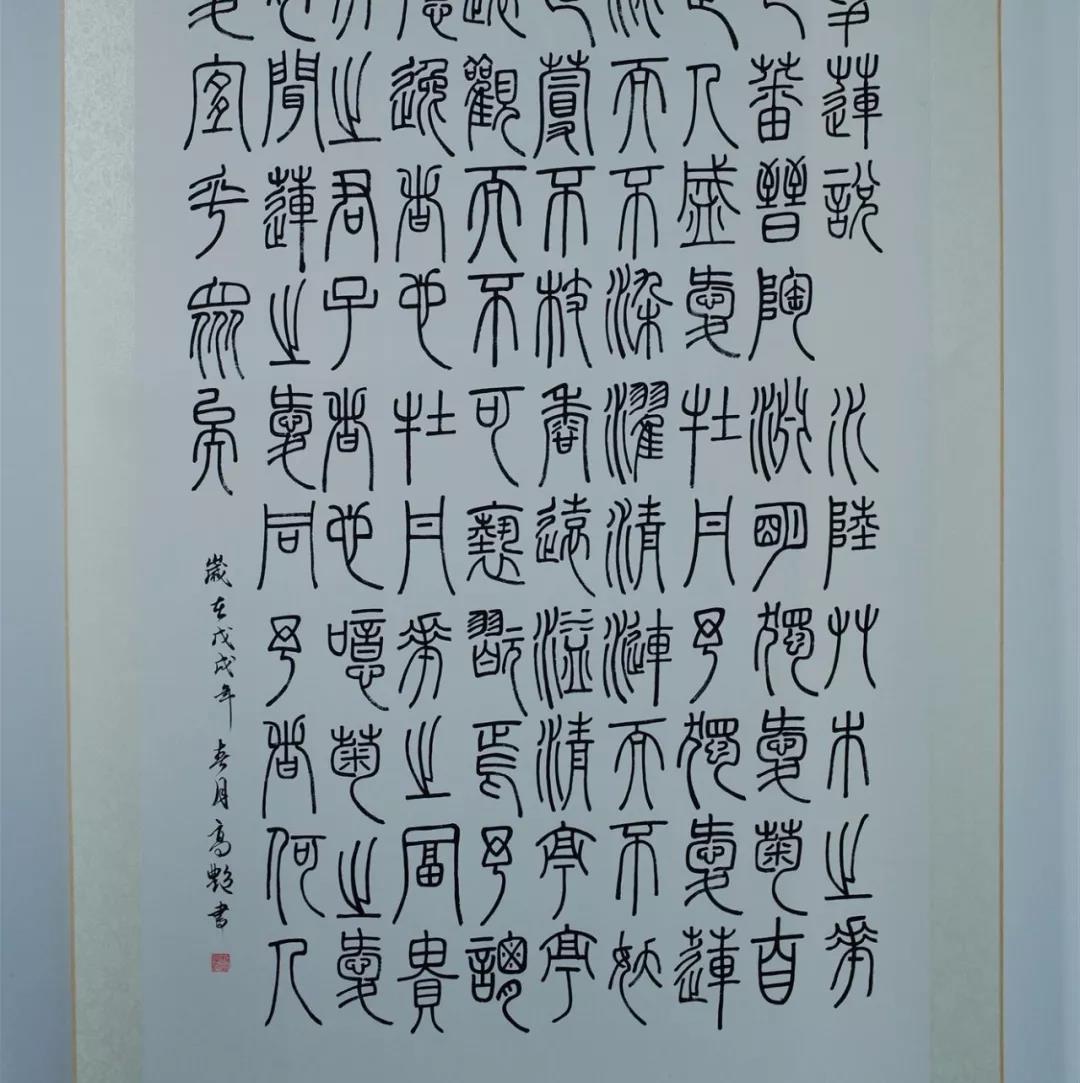 蓮說 水陸艸木之華
蕃晉陶淵明獨愛菊自
人盛愛牡丹予獨愛蓮
而不染濯清漣而不妖
蔓不枝香遠溢清亭亭
觀而不可褻翫焉予謂
逸者也牡丹華之富貴
之君子者也噫菊之愛
聞蓮之愛同予者何人
宜乎眾矣
歲在戊戌年 春月高艷書